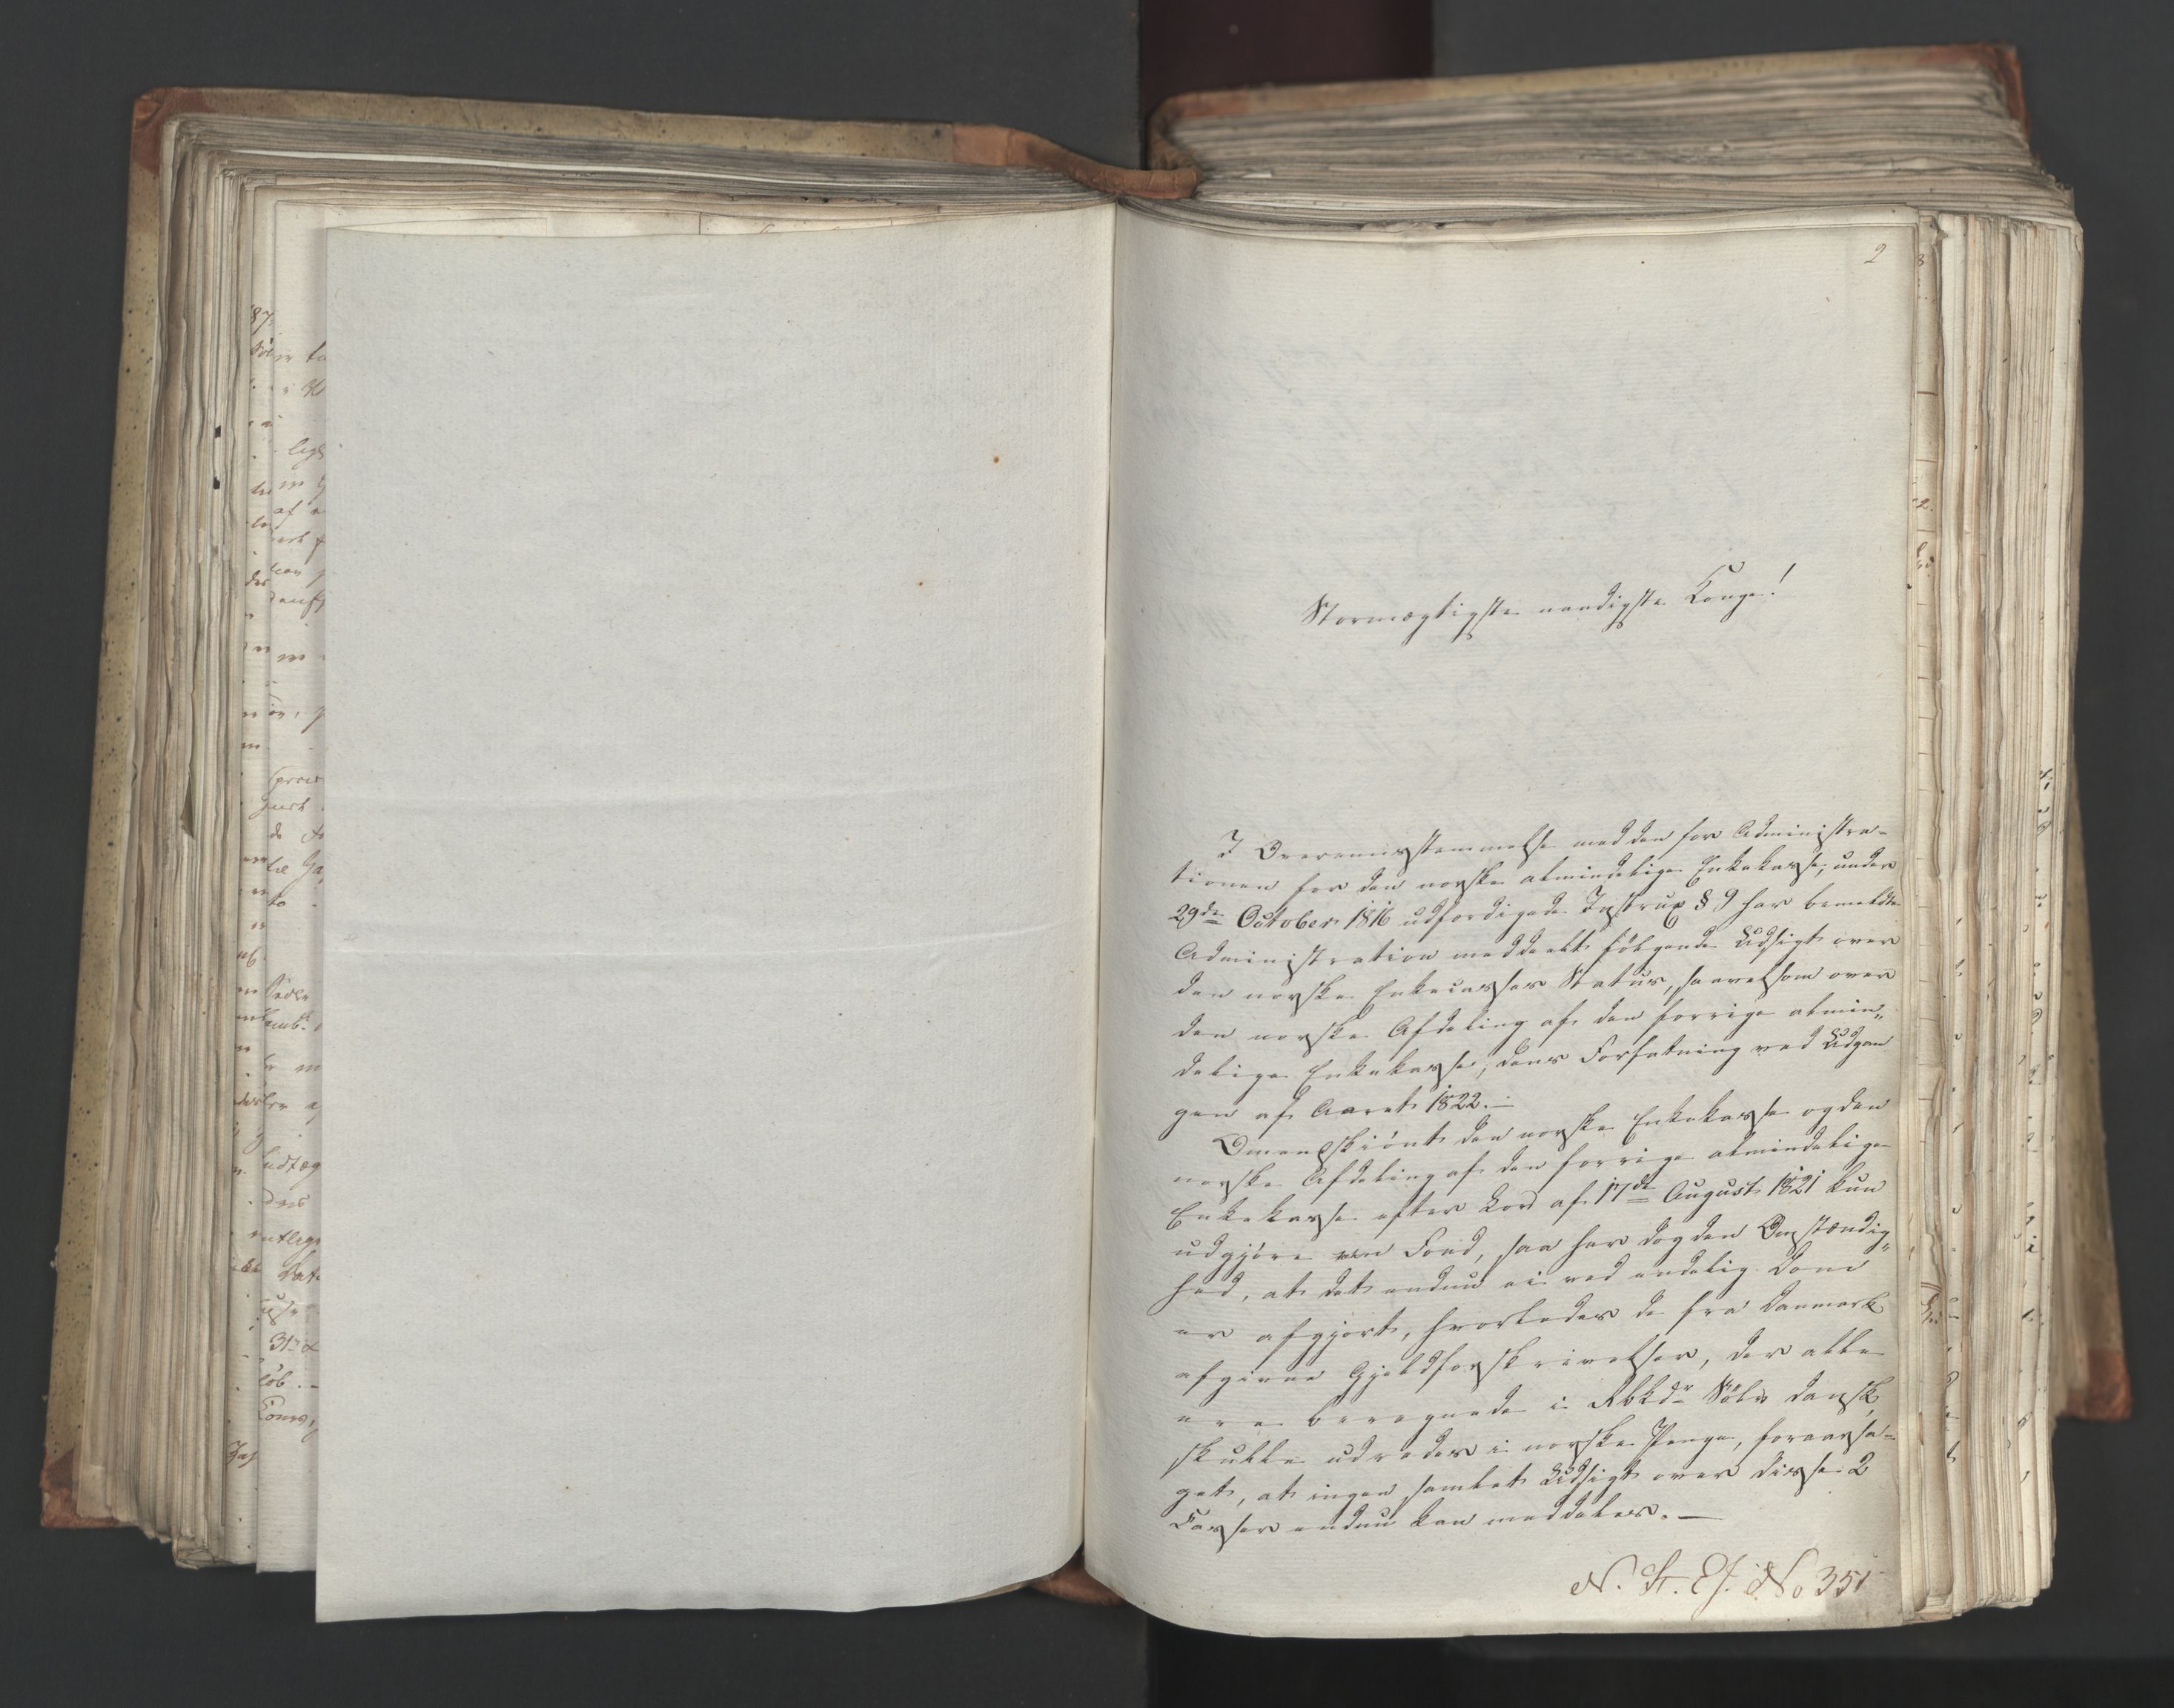 2
Stormægtigste naadigste Konge!
I Overeensstemmelse med den for Administra-
tionen for den norske almindelige Enkekasse, under
29de October 1816 udfærdigede Instrux § 9 har bemeldte
Administration meddeelt følgende Udsigt over
den norske Enkecasses Status, saavelsom over
den norske Afdeling af den forrige almin„
delige Enkekasse, dens Forfatning ved Udgan
gen af Aaret 1822.—
Omendskiönt den norske Enkekasse og den
norske Afdeling af den forrige almindelige
Enkekasse efter Lov af 17de August 1821 kun
udgjöre een Fond, saa har dog den Omstændig„
hed, at det endnu ei ved endelig Dom
er afgjort, hvorledes de fra Danmark
afgivne Gjeldsforskrivelser, der alle
ere beregnede i Rbkdr Sölv dansk,
skulle udredes i norske Penge, foraarsa-
get, at ingen samlet Udsigt over disse 2
Casser endnu kan meddeles. —
N. St. Ej. No 351